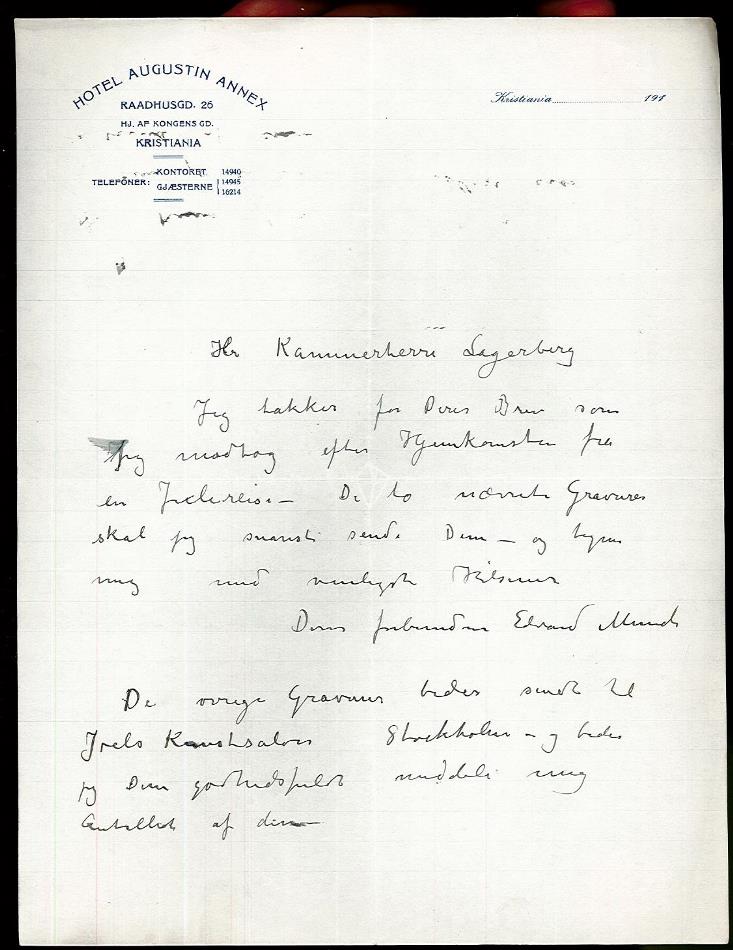 HOTEL AUGUSTIN ANNEX
RAADHUSGD. 26
HJ. AF KONGENS GD.
KRISTIANIA
TELEFONER: KONTORET 14940
GJÆSTERNE 14945
16214
Kristiania 191
Hr Kammerherre Lagerberg
Jeg takker for Deres Brev som
jeg modtog efter Hjemkomsten fra
en Julereise – De to nævnte Gravures
skal jeg snarest sende Dem – og tegner
mig med venligste Hilsener
Deres forbundne Edvard Munch
De øvrige Gravurer bedes sendt til
Joels Kunstsalon Stockholm – og beder
jeg Dem godhedsfuldt meddele mig
Antallet af dem